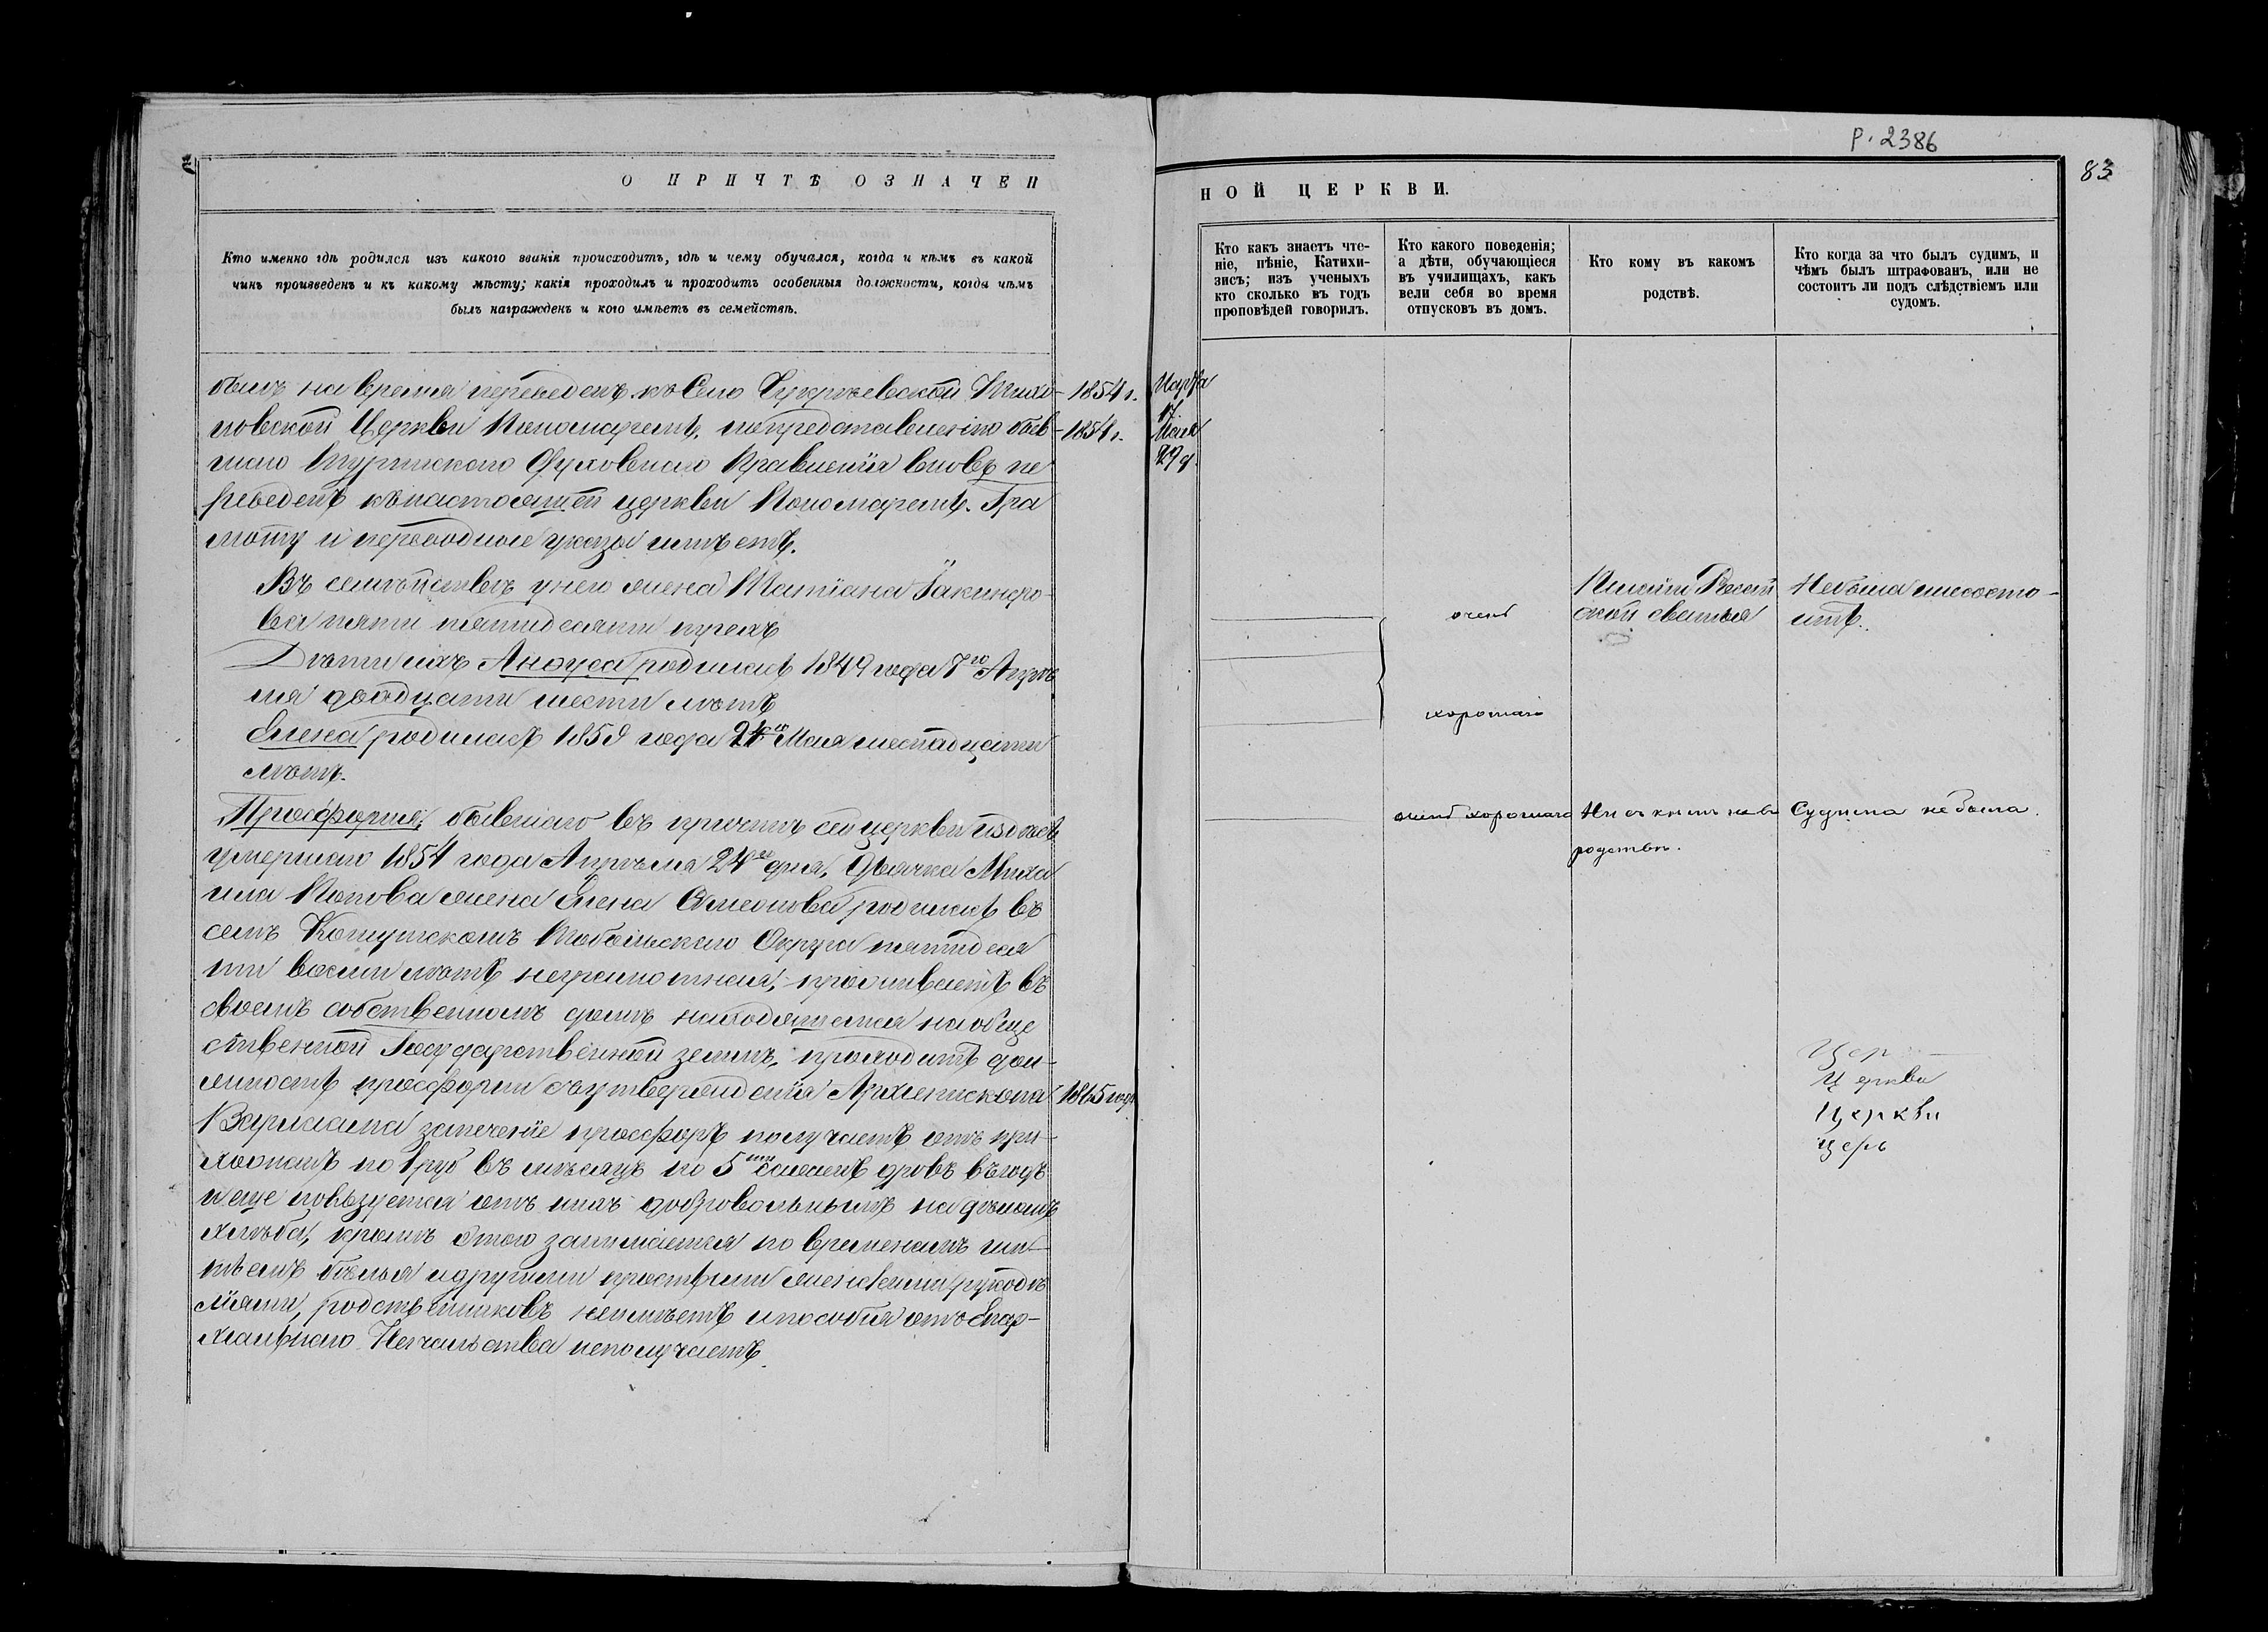 Р. 2386
83
О ПРИЧТѢ ОЗНАЧЕН
НОЙ ЦЕРКВИ.
Кто именно гдѣ родился изъ какого званія происходитъ, гдѣ и чему обучался, когда и кѣмъ въ какой
чинъ произведенъ и къ какому мѣсту; какія проходилъ и проходитъ особенныя должности, когда чѣмъ
былъ награжденъ и кого имѣетъ въ семействѣ.
былъ на время переведенъ къ Село Чукреевской Тихо-
новской Церкви Пономаремъ, по представленію быв-
шаго Туринскаго Духовнаго Правленія вновь пе
реведенъ къ настоящей церкви Пономаремъ. Гра
моту и переводные указы имѣетъ.
Въ семействѣ у него жена Татіана Іакинфо-
ва пяти пятидесяти трехъ
Дѣти ихъ Анфуса родилась 1849 года 7го Апрѣ
ля двадцати шести лѣтъ
Елена родилась 1859 года 24го Мая шестнадцати
лѣтъ.
Просфорня, бывшаго въ причтѣ сей церкви
умершаго 1854 года Апрѣля 24го дня, Дьячка Миха
ила Попова жена Елена Симеонова родилась въ
селѣ Тобольскаго Округа пятидеся
ти восьми лѣтъ неграмотная, проживаетъ въ
своемъ собственномъ домѣ находящемся на обще
ственной Государственной землѣ, проходитъ дол-
жность просфорни съ утвержденія Архіепископа
Варлаама за печеніе просфоръ получаетъ отъ при-
хожанъ по 1 руб въ мѣсяцъ по 5ти саженъ дровъ въ годъ
и еще пользуется отъ нихъ добровольнымъ надѣломъ
хлѣба, кромѣ этого занимается по временамъ ши-
тьемъ бѣлья и другими простыми женскими рукодѣ
ліями, родственниковъ неимѣетъ и пособія отъ Епар-
хіальнаго Начальства неполучаетъ.
1854 г.
1854 г.
1865 года
Марта
17.
Мая
29 д.
Кто какъ знаетъ чте-
ніе, пѣніе, Катихи-
зисъ; изъ ученыхъ
кто сколько въ годъ
проповѣдей говорилъ.
Кто какого поведенія;
а дѣти, обучающіеся
въ училищахъ, какъ
вели себя во время
отпусковъ въ домъ.
очень
хорошаго
очень хорошаго
Кто кому въ какомъ
родствѣ.
сватья
Ни съ кѣмъ не въ
родствѣ.
Кто когда за что былъ судимъ, и
чѣмъ былъ штрафованъ, или не
состоитъ ли подъ слѣдствіемъ или
судомъ.
Небыла и несосто-
итъ.
Судима не была.
Цер
Церкви
Церкви
Церь